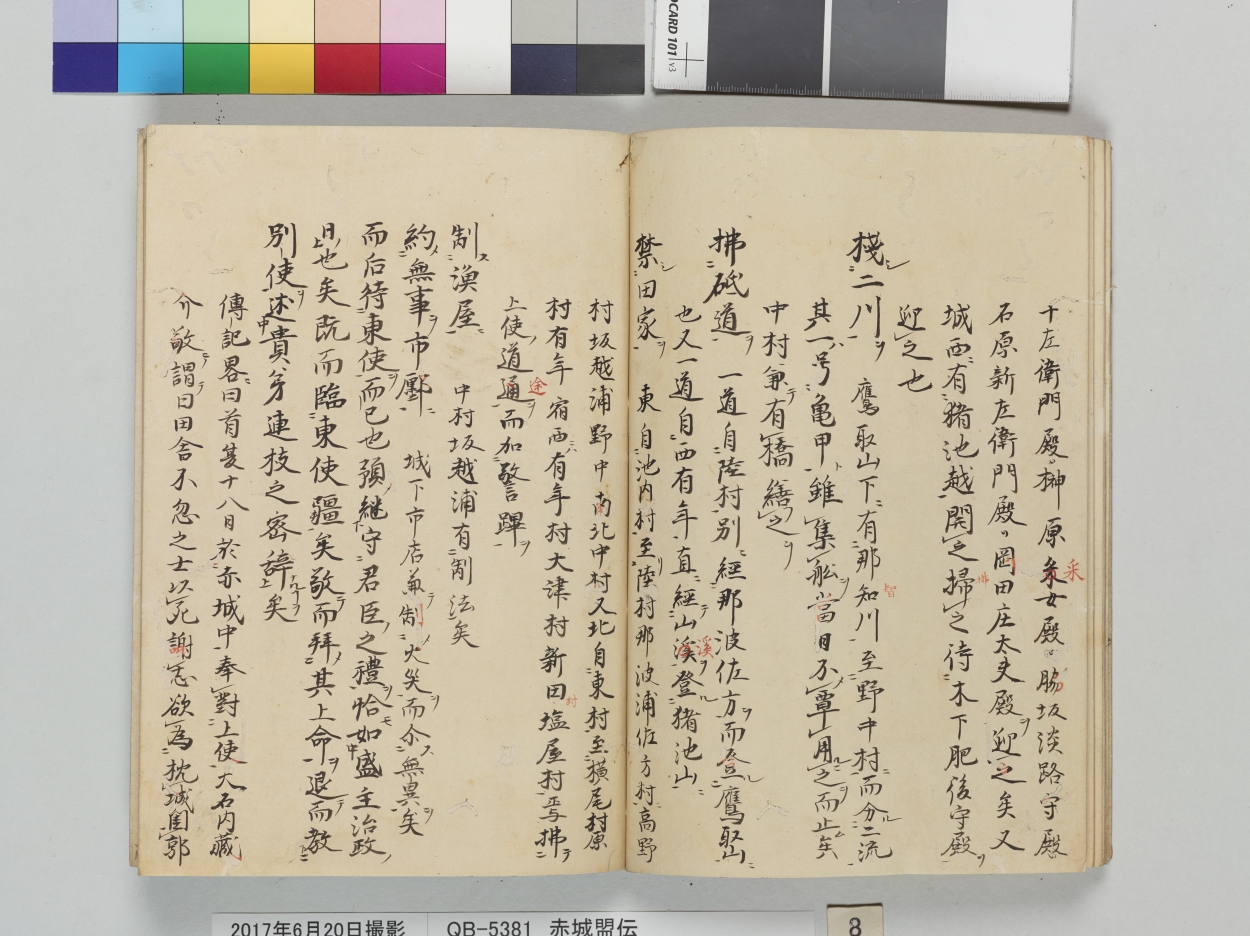 十左衛門殿榊原条女殿脇坂淡路守殿
采
石原新左衛門殿岡田庄太夫殿迎之矣又
城西有猪池越開之掃之待木下肥後守殿
迎之也
棧二川 鷹取山下有那知川至野中村而分二流
智
其一号亀甲雖集舩当日不覃用之而止矣
中村兼有橋繕之
拂砥道 一道自陸村別經那波佐方而登鷹取山
也又一道自西有年直經山溪登猪池山
溪
禁田家 東自池内村至陸村那波浦佐方村高野
村坂越浦野中南北中村又北自東村至横尾村原
村有年宿西有年村大津村新田塩屋村焉与拂
村
上使道通而加警蹕
途
制漁屋 中村坂越浦有制法矣
約無事市鄽 城下市店兼制火災而尒無異矣
而后待東使而已也預継守君臣之禮恰如盛主治政
日也矣既而臨東使疆矣敬而拜其上命退而教
別使述貴弟連枝之密辞矣
傳記畧曰首夏十八日於赤城中奉對上使大石内藏
介敬謂曰田舎不忽之士以死謝恙欲為枕城国郭
CARD 101 v3
2017年6月20日撮影 QB-5381 赤城盟伝
8